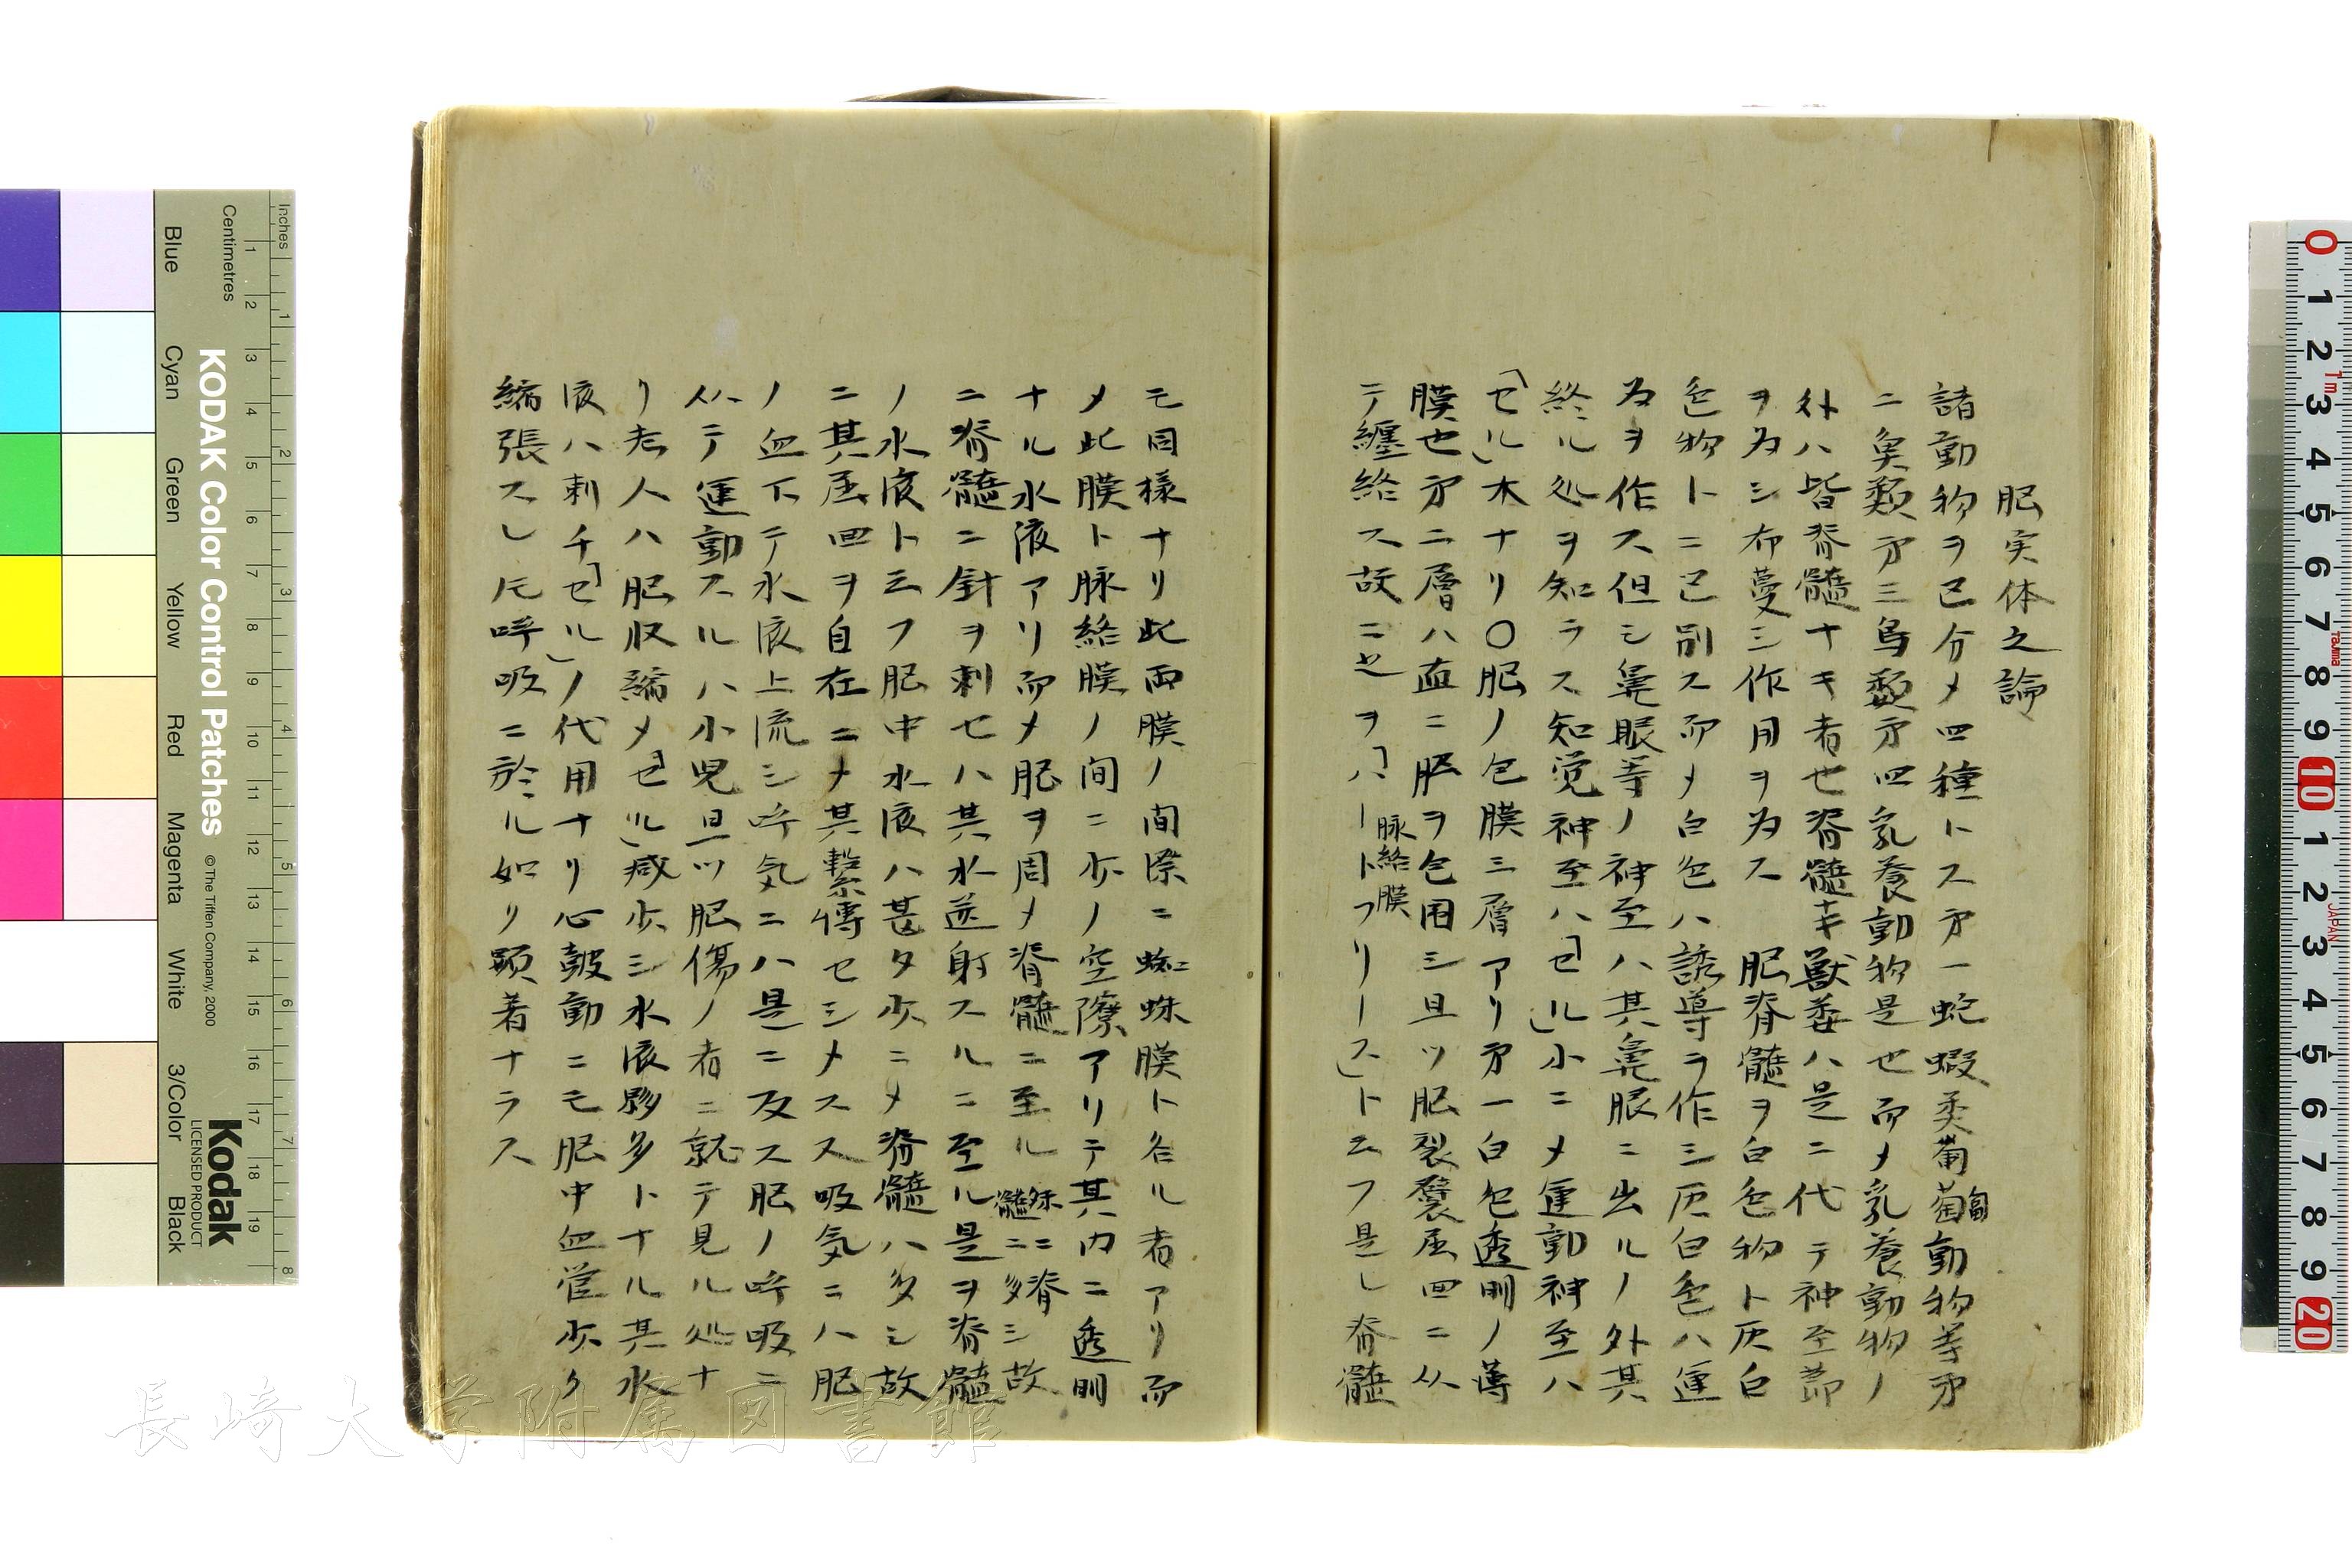 脳実体之論
諸動物ヲ区分メ四種トス㐧一蛇蝦柔葡萄動物等㐧
ニ魚類㐧三鳥類㐧四乳養動物是也而メ乳養動物ノ
外ハ皆脊髄ナキ者也脊髄ナキ獣娄ハ是ニ代テ神至節
ヲ為シ布蔓シ作用ヲ為ス 脳脊髄ヲ白色物ト灰白
色物トニ区別ス而メ白色ハ誘導ヲ作シ灰白色ハ運
為ヲ作ス但シ鼻眼等ノ神至ハ其鼻眼ニ出ルノ外其
終ル処ヲ知ラス知覚神至ハ「セル」小ニメ運動神至ハ
「セル」大ナリ〇脳ノ包膜三層アリ㐧一白色透明ノ薄
膜也㐧二層ハ直ニ脳ヲ包囲シ且ツ脳裂襞屈凹ニ从
テ纏絡ス故ニ之ヲ「ハートフリース」ト云フ是レ脊髄
脉絡膜
モ同様ナリ此両膜ノ間際ニ蜘蛛膜ト名ル者アリ而
メ此膜ト脉絡膜ノ間ニ少ノ空隙アリテ其内ニ透明
ナル水液アリ而メ脳ヲ周メ脊髄ニ至ル 殊ニ脊髄ニ多シ故
ニ脊髄ニ針ヲ刺セハ其水迸射スルニ至ル是ヲ脊髄
ノ水液ト云フ脳中水液ハ甚タ少ニメ脊髄ハ多シ故
ニ其屈凹ヲ自在ニメ其繋博セシメスス吸気ニハ脳
ノ血下テ水液上流シ呼気ニハ是ニ反ス脳ノ呼吸ニ
从テ運動スルハ小児且ツ脳傷ノ者ニ就テ見ル処ナ
リ老人ハ脳収縮メ「セル」減少シ水液夥多トナル其水
液ハ剌千「セル」ノ代用ナリ心皷動ニモ脳中血管少ク
縮張スレ𪜈呼吸ニ於ル如リ顕著ナラス
Inches
Centimetres
KODAK Color Control Patches
© The Tiffen Company, 2000
Kodak
LICENSED PRODUCT
Blue
Cyan
Green
Yellow
Red
Magenta
White
3/Color
Black
長崎大学附属図書館